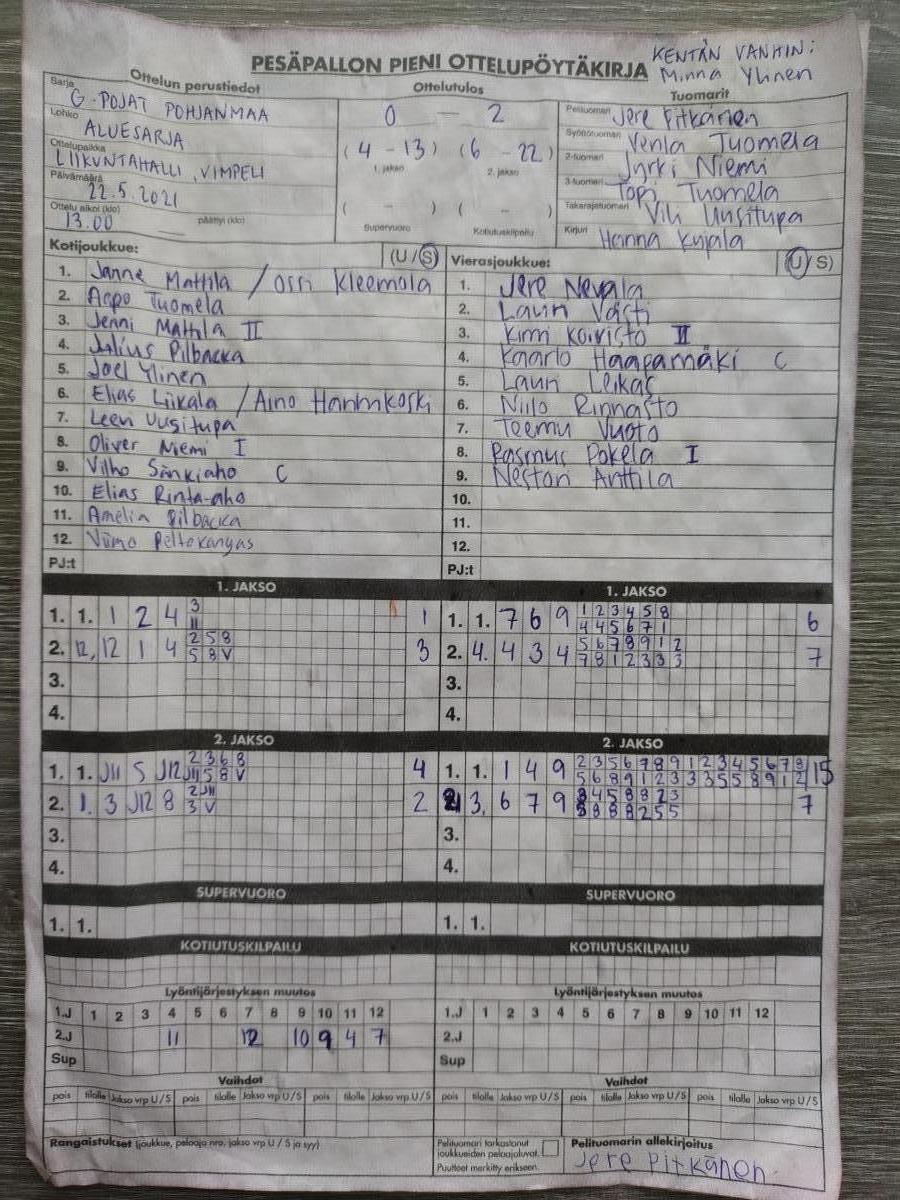 KENTÄN VANHIN:
PESÄPALLON PIENI OTTELUPÖYTÄKIRJA Minna Ylinen
Ottelun perustiedot Ottelutulos Tuomarit
Sarja G-POJAT POHJANMAA
Lohko ALUESARJA
Ottelupaikka LIIKUNTAHALLI, VIMPELI
Päivämäärä 22.5.2021
Ottelu alkoi (klo) 13.00 päättyi (klo)
0 - 2
(4 - 13) (6 - 22)
1. jakso 2. jakso
( - ) ( - )
Supervuoro Kotiutuskilpailu
Pelituomari Jere Pitkänen
Syöttötuomari Venla Tuomela
2-tuomari Jyrki Niemi
3-tuomari Topi Tuomela
Takarajatuomari Vili Uusitupa
Kirjuri Hanna Kujala
Kotijoukkue: (U/S)
1. Janne Mattila / Ossi Kleemola
2. Aapo Tuomela
3. Jenni Mattila II
4. Julius Pilbacka
5. Joel Ylinen
6. Elias Liikala / Aino Hanhikoski
7. Leevi Uusitupa
8. Oliver Niemi I
9. Vilho Sänkiaho C
10. Elias Rinta-aho
11. Amelia Pilbacka
12. Viimo Peltokangas
PJ:t
Vierasjoukkue: (U/S)
1. Jere Nevala
2. Lauri Voisti
3. Kimi Koivisto II
4. Kaarlo Haapamäki C
5. Lauri Leikas
6. Niilo Rinnasto
7. Teemu Vuoto
8. Rasmus Pokela I
9. Nestori Anttila
10.
11.
12.
PJ:t
1. JAKSO
1. 1. 1 2 4 3 1
11
2. 12, 12 1 4 2 5 8 3
5 8 V
3.
4.
1. JAKSO
1. 1. 7 6 9 1 2 3 4 5 8 6
4 4 5 6 7 1
2. 4. 4 3 4 5 6 7 8 9 1 2 7
7 8 1 2 3 3 3
3.
4.
2. JAKSO
1. 1. J11 5 J12 2 3 6 8 4
J11 5 8 V
2. 1. 3 J12 8 2 J11 2
3 V
3.
4.
2. JAKSO
1. 1. 1 4 9 2 3 5 6 7 8 9 1 2 3 4 5 6 7 8 15
5 6 8 9 1 2 3 3 3 5 5 8 9 1 2
3. 6 7 9 3 4 5 8 8 2 3 7
8 8 8 2 5 5
3.
4.
SUPERVUORO SUPERVUORO
1. 1. 1. 1.
KOTIUTUSKILPAILU KOTIUTUSKILPAILU
Lyöntijärjestyksen muutos Lyöntijärjestyksen muutos
1.J 1 2 3 4 5 6 7 8 9 10 11 12 1.J 1 2 3 4 5 6 7 8 9 10 11 12
2.J 11 12 10 9 4 7 2.J
Sup Sup
Vaihdot Vaihdot
pois tilalle Jakso vrp U/S pois tilalle Jakso vrp U/S pois tilalle Jakso vrp U/S pois tilalle Jakso vrp U/S pois tilalle Jakso vrp U/S pois tilalle Jakso vrp U/S
Rangaistukset (joukkue, pelaaja nro, jakso vrp U / S ja syy)
Pelituomari tarkastanut
joukkueiden pelaajaluvat.
Puutteet merkitty erikseen.
Pelituomarin allekirjoitus
Jere Pitkänen